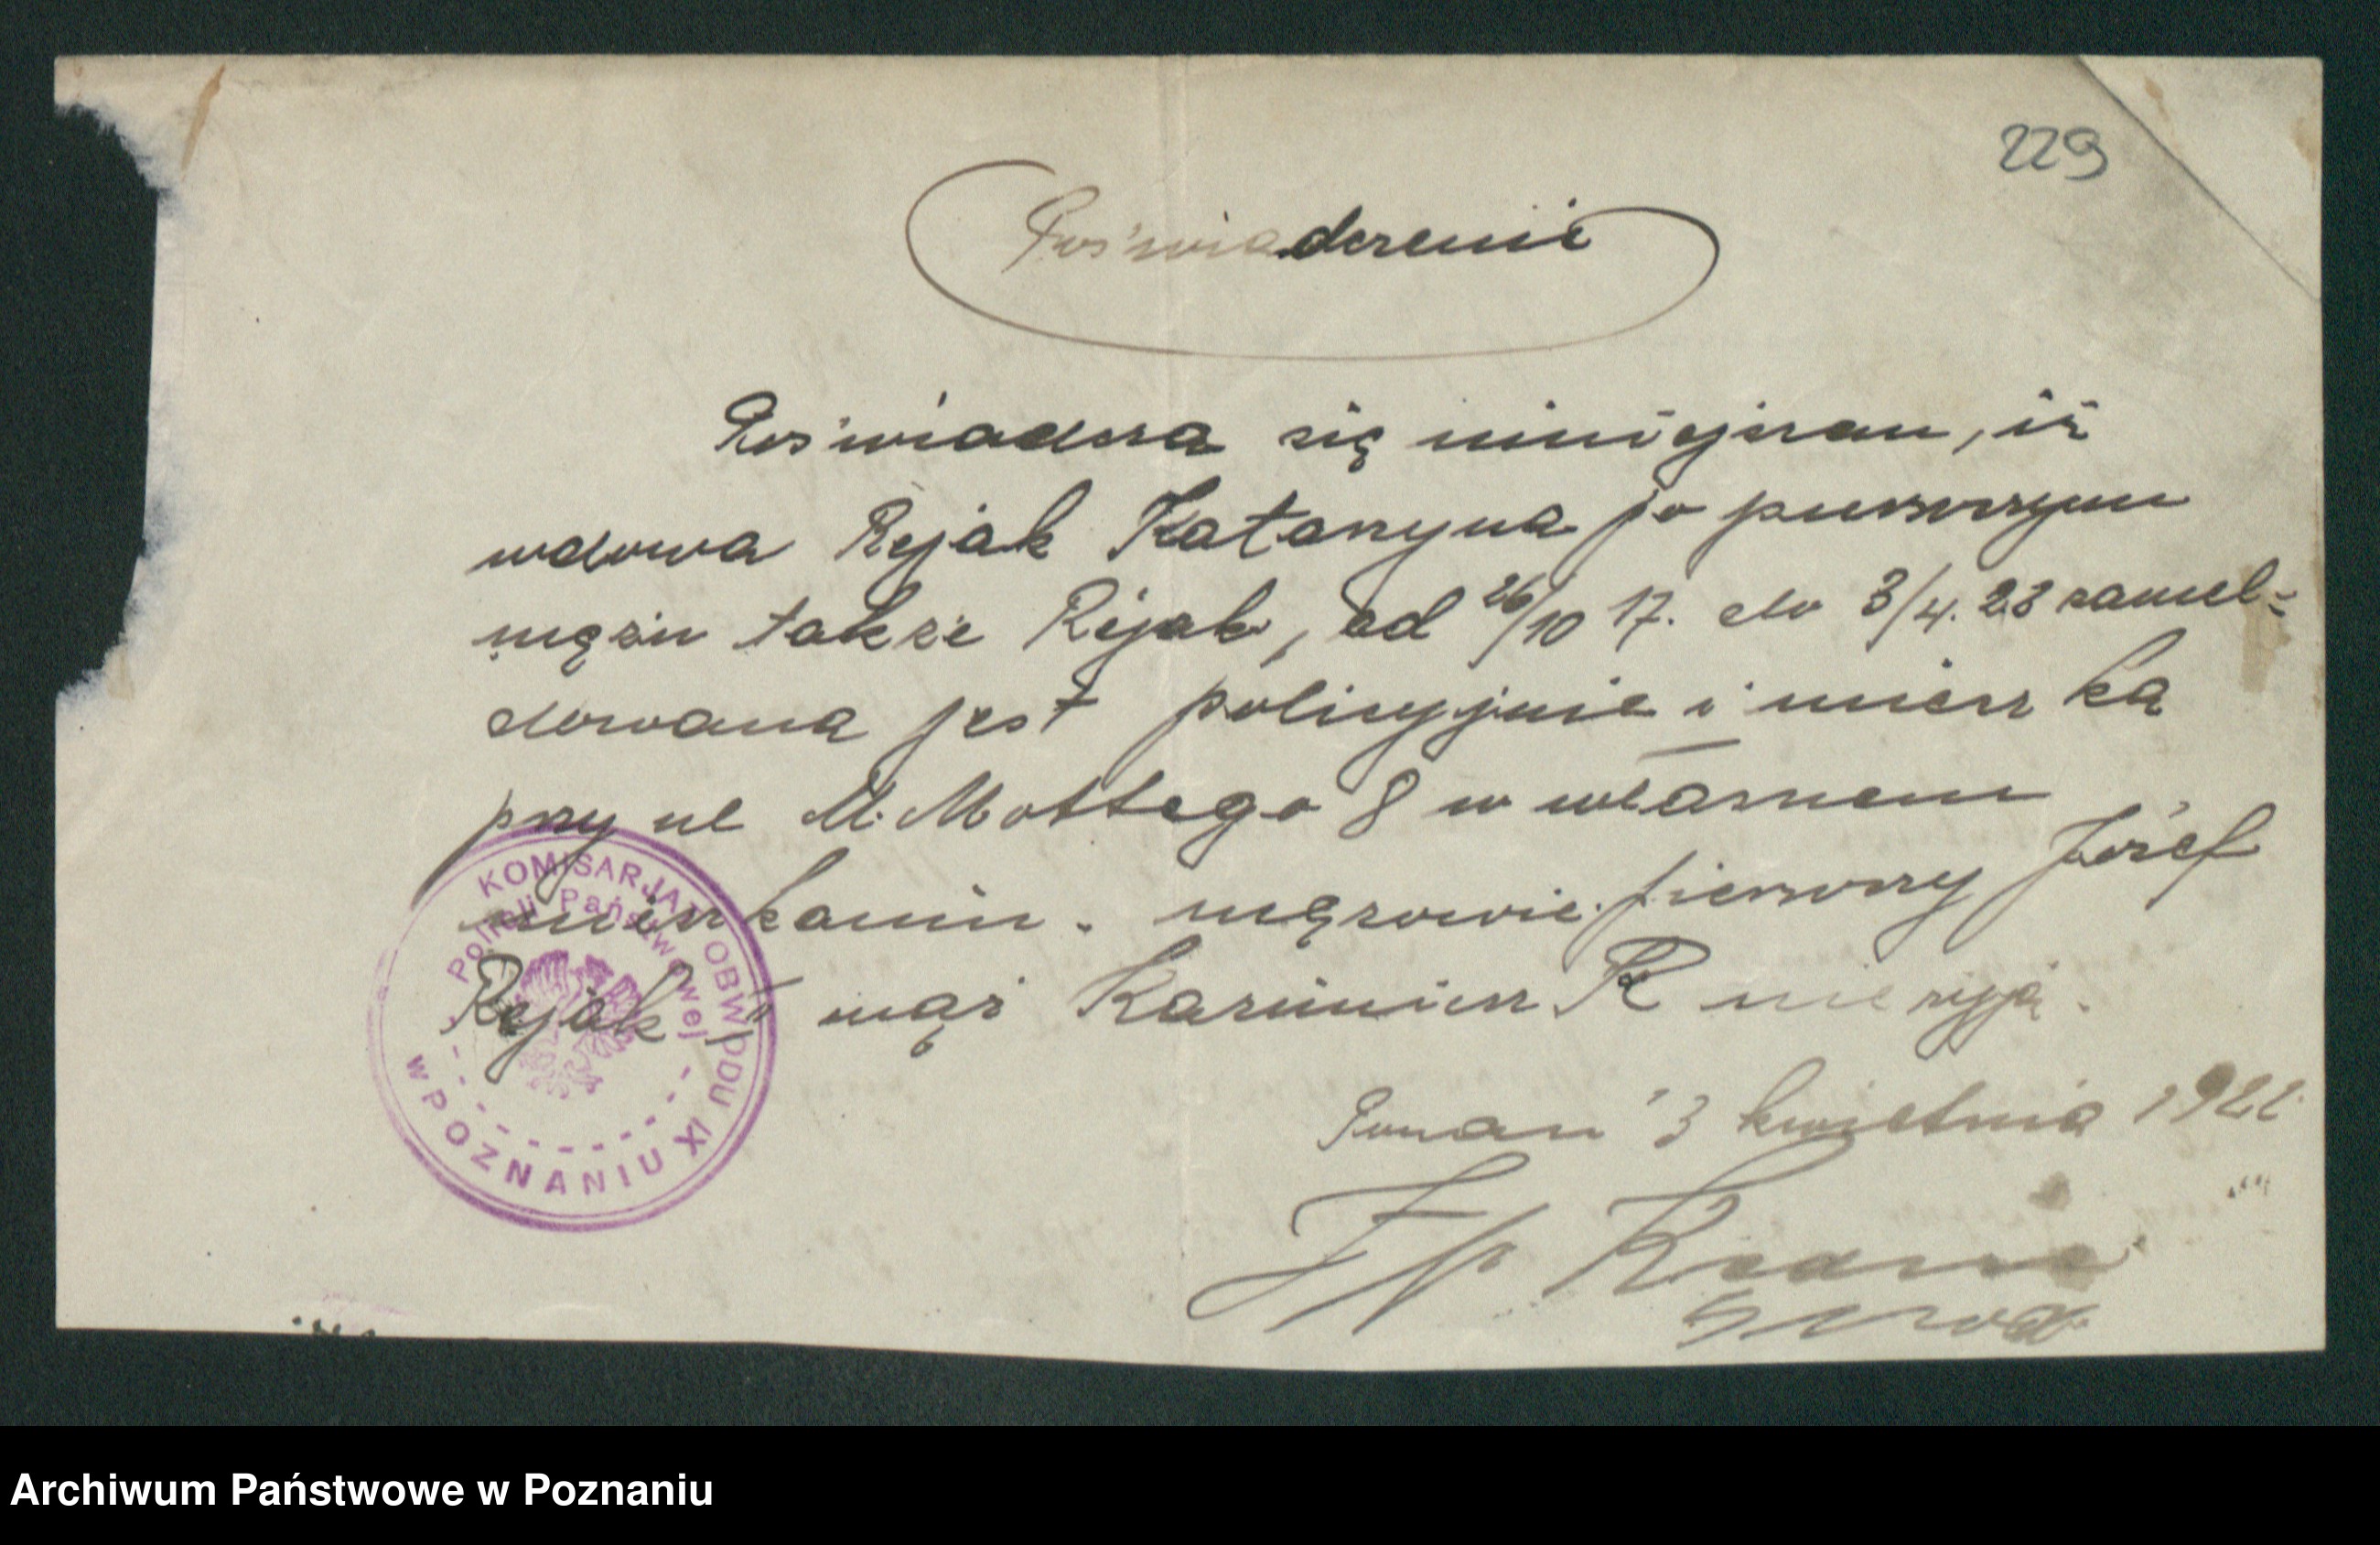 229
Poświadczenie
Poświadcza się niniejszem, iż
wdowa Rejak Katarzyna po pierwszym
mężu także Rejak, od 26/10 17. do 3/4. 23 zamel=
dowana jest policyjnie i mieszka
przy ul M. Mottego 8 w własnem
mieszkaniu. mężowie. pierwszy Józef
Rejak i II mąż Kazimierz R nie żyją.
Poznań 3 kwietnia 192
KOMISARJAT OBWODU XI
Policji Państwowej
w POZNANIU
Archiwum Państwowe w Poznaniu